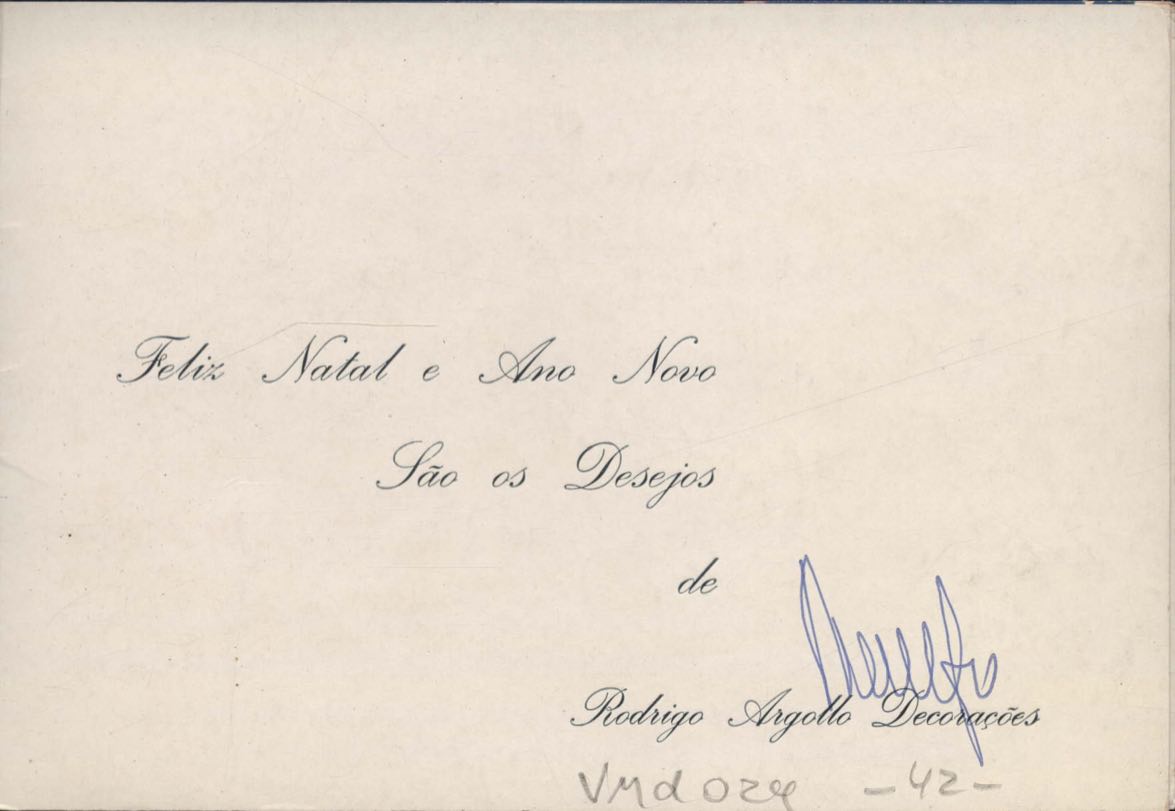 Feliz Natal e Ano Novo
São os Desejos
de
Rodrigo Argollo Decorações
-42-